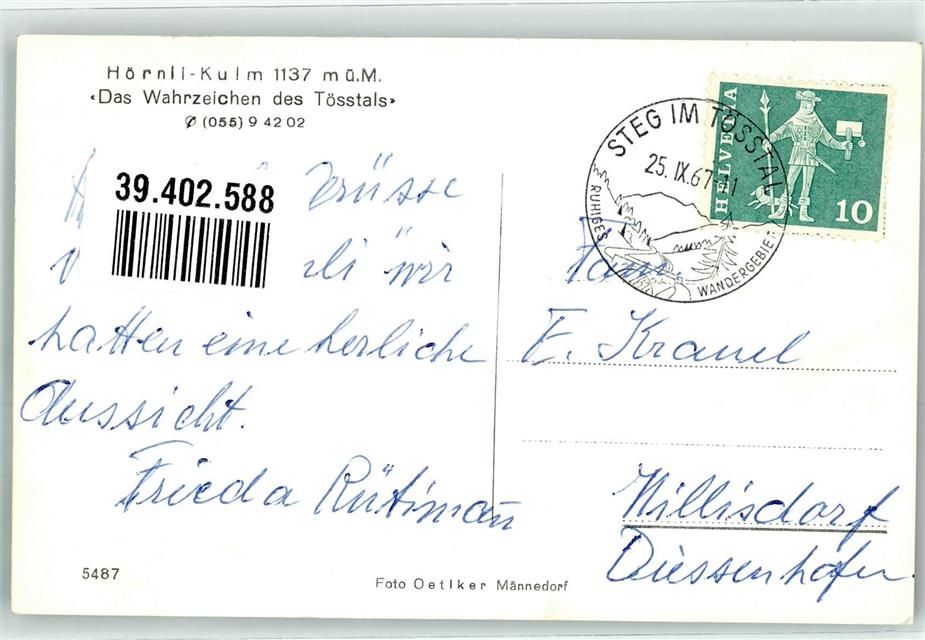 Hörnli-Kulm 1137 m ü.M.
«Das Wahrzeichen des Tösstals»
✆ (055) 9 42 02
39.402.588
Grüsse
wir
hatten eine herliche
Aussicht.
Frieda Rütimañ
5487
Foto Oetiker Männedorf
STEG IM TÖSSTAL
25.IX.67-11
RUHIGES WANDERGEBIET
HELVETIA
10
Fam.
E.
Willisdorf
Diessenhofen